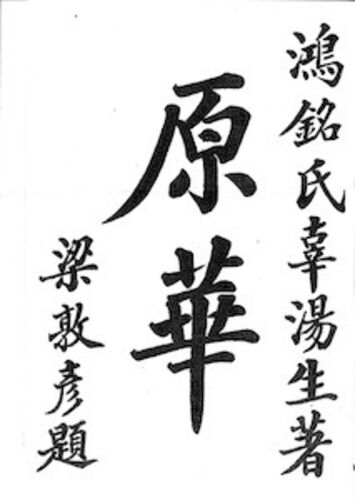 鴻銘氏辜湯生著
原華
梁敦彥題